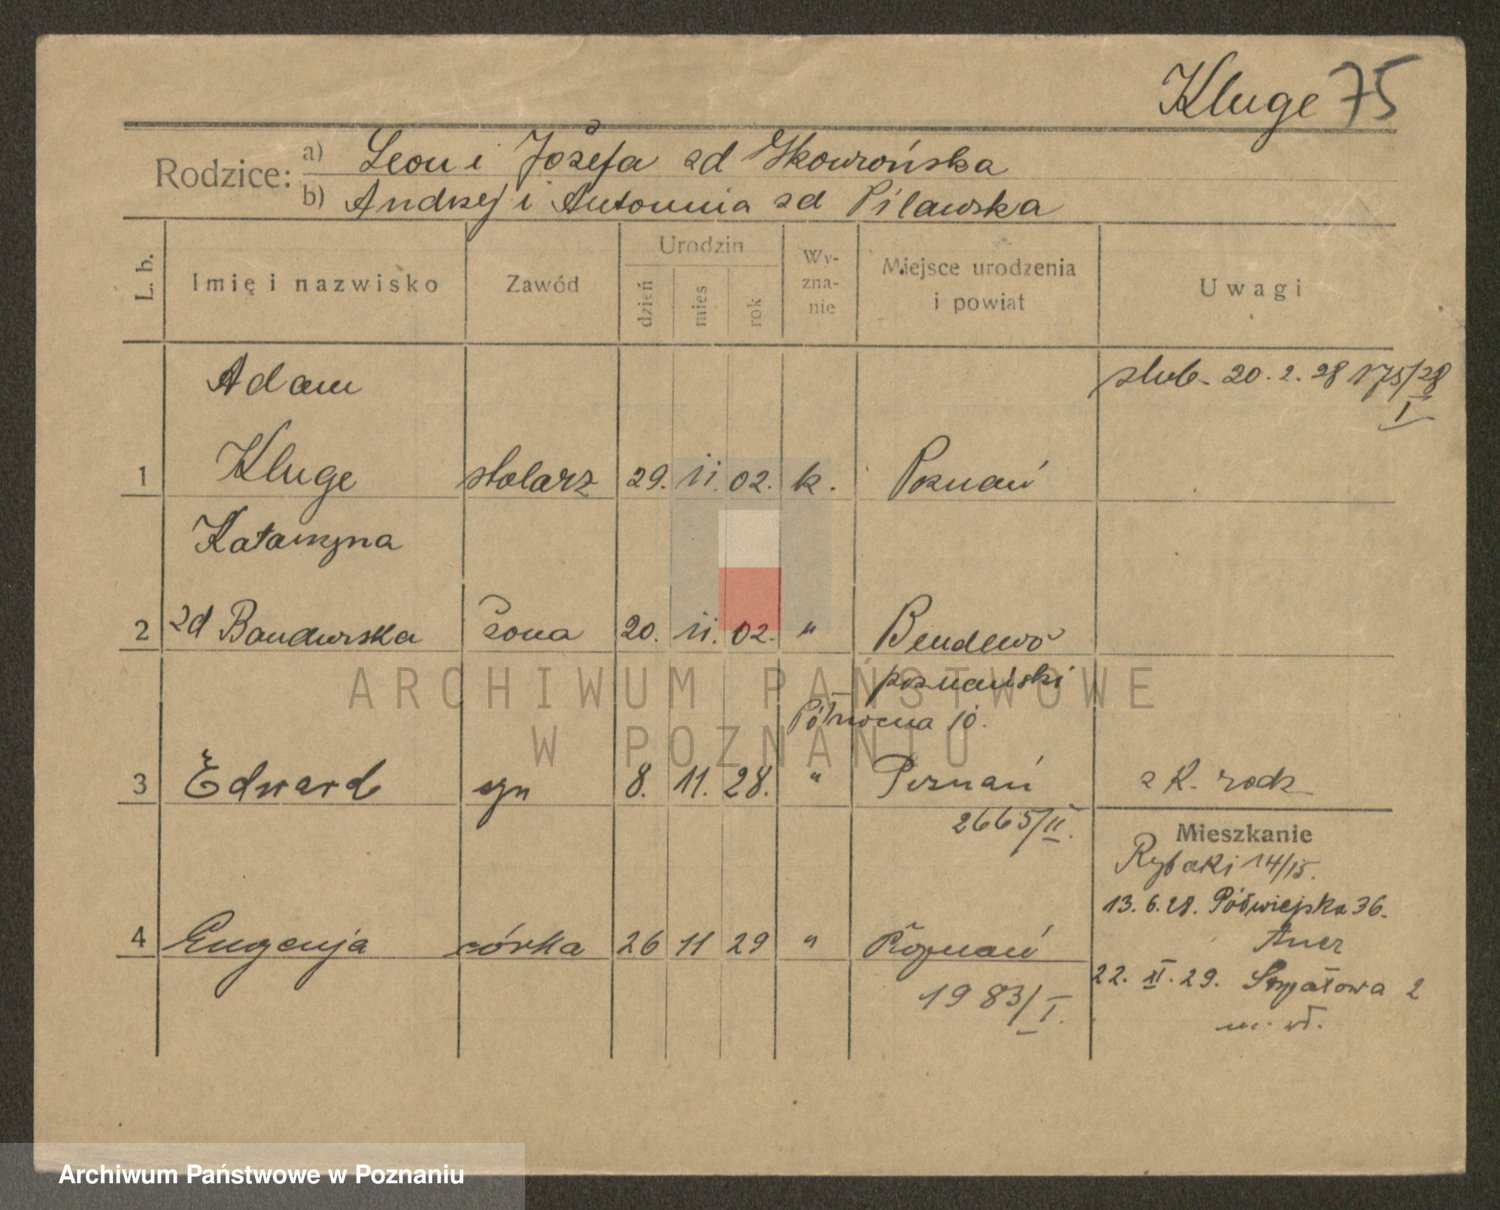 Kluge 75
Rodzice: a) Leon i Józefa zd Skowrońska
b) Andrzej i Antonina zd Pilawska
L. b.
Imię i nazwisko
Zawód
Urodzin
dzień
mies
rok
Wy-
zna-
nie
Miejsce urodzenia
i powiat
Uwagi
Adam
ślub 20.2.28 175/28
I
1 Kluge stolarz 29. 11. 02. k. Poznań
Katarzyna
2 zd Bandurska żona 20. 11. 02. " Bendlewo
poznański
ARCHIWUM PAŃSTWOWE
Północna 10.
W POZNANIU
3 Edward syn 8. 11. 28. " Poznań
2665/II.
Mieszkanie
Rybaki 14/15.
13.6.28. Półwiejska 36.
4 Eugenja córka 26 11 29 " Poznań
22. XI. 29. Strzałowa 2
1983/I.
Archiwum Państwowe w Poznaniu